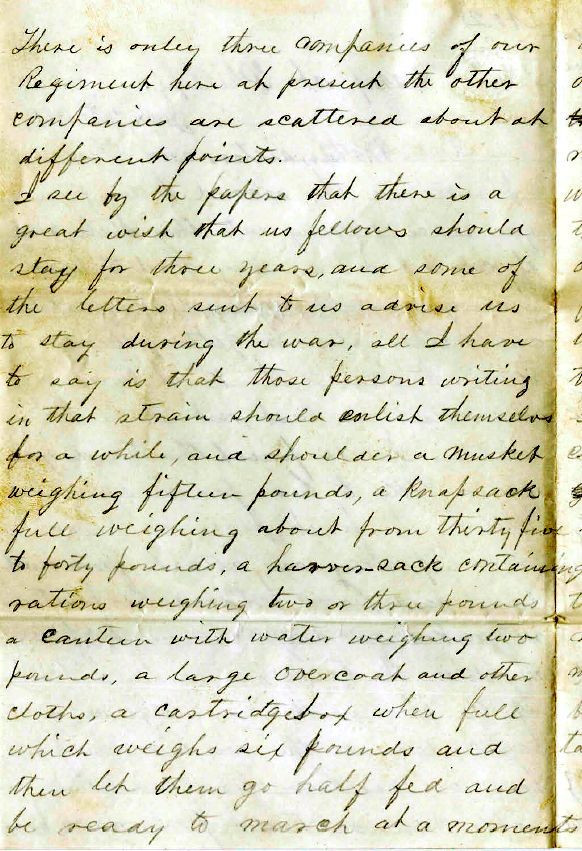 There is onley three companies of our
Regiment here at present the other
companies are scattered about at
different points.
I see by the papers that there is a
great wish that us fellows should
stay for three years, and some of
the letters sent to us advise us
to stay during the war, all I have
to say is that those persons writing
in that strain should enlist themselvs
for a while, and shoulder a musket
weighing fifteen pounds, a knapsack
full weighing about from thirty five
to forty pounds, a haver-sack containing
rations weighing two or three pounds
a canteen with water weighing two
pounds, a large overcoat and other
cloths, a cartridgebox when full
which weighs six pounds and
then let them go half fed and
be ready to march at a moments